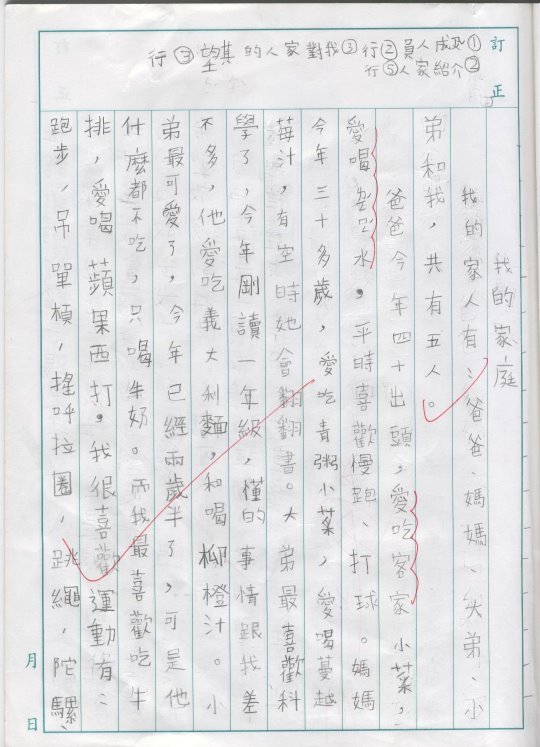 訂正
①成員②行③對我家人的期望③行
②介紹家人⑤行
我的家庭
我的家人有:爸爸、媽媽、大弟、小
弟和我,共有五人。
爸爸今年四十出頭,愛吃客家小菜,
愛喝水,平時喜歡慢跑、打球。媽媽
今年三十多歲,愛吃青粥小菜,愛喝蔓越
莓汁,有空時她會翻翻書。大弟最喜歡科
學了,今年剛讀一年級,懂的事情跟我差
不多,他愛吃義大利麵,和喝柳橙汁。小
弟最可愛了,今年已經兩歲半了,可是他
什麼都不吃,只喝牛奶。而我最喜歡吃牛
排,愛喝蘋果西打,我很喜歡運動有:
跑步,吊單槓,搖呼拉圈,跳繩,陀螺、
月 日